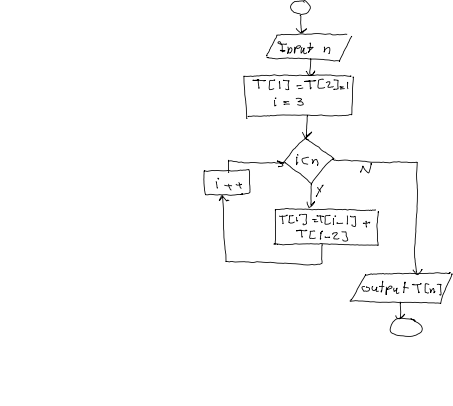 Input n
T[1] = T[2]=1
i = 3
i<n
N
i++
Y
T[i]=T[i-1] +
T[i-2]
output T[n]